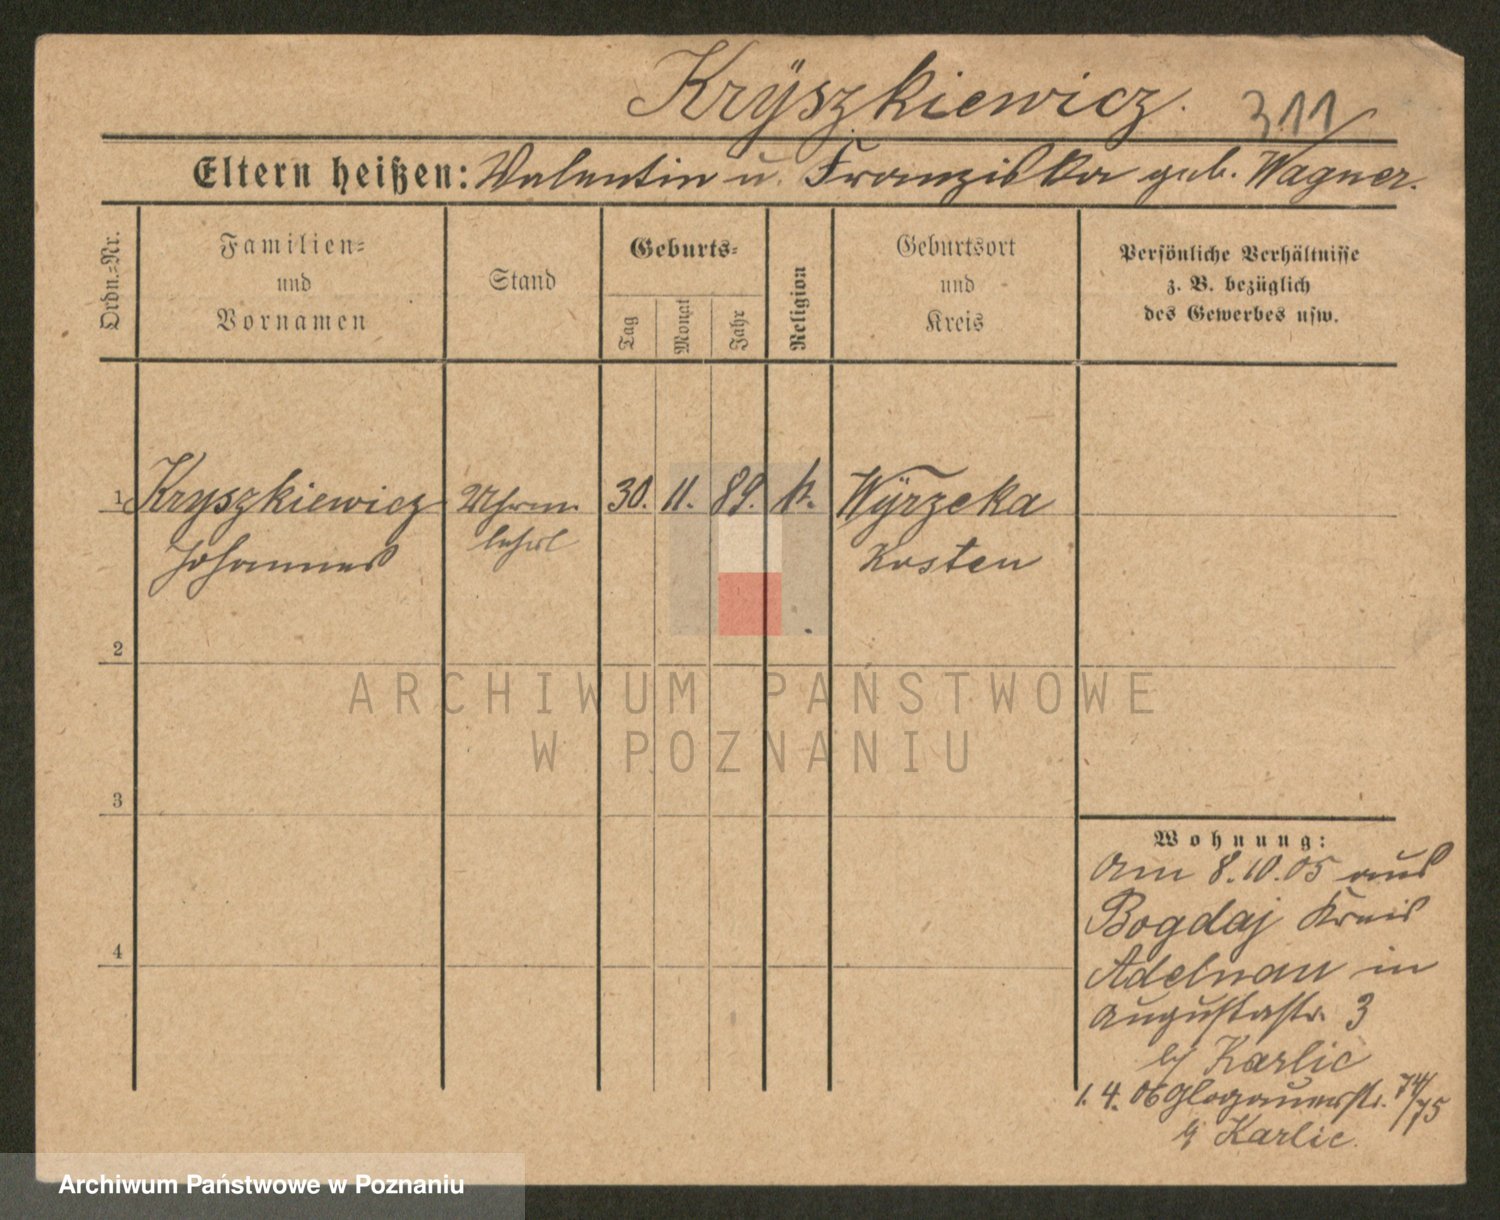 Krÿszkiewicz. 311
Eltern heißen: Valentin u. Franziska geb. Wagner.
Ordn.-Nr.
Familien-
und
Vornamen
Stand
Geburts-
Tag
Monat
Jahr
Religion
Geburtsort
und
Kreis
Persönliche Verhältnisse
z. B. bezüglich
des Gewerbes usw.
1 Kryszkiewicz Uhrm. 30. 11. 89. k. Wÿrzeka
Johannes lehrl Kosten
2
3
4
Wohnung:
Am 8.10.05 aus
Bogdaj Kreis
Adelnau in
Augustastr. 3
bj Karlic
1.4.06 Glogauerstr. 74/75
bj Karlic.
ARCHIWUM PAŃSTWOWE
W POZNANIU
Archiwum Państwowe w Poznaniu